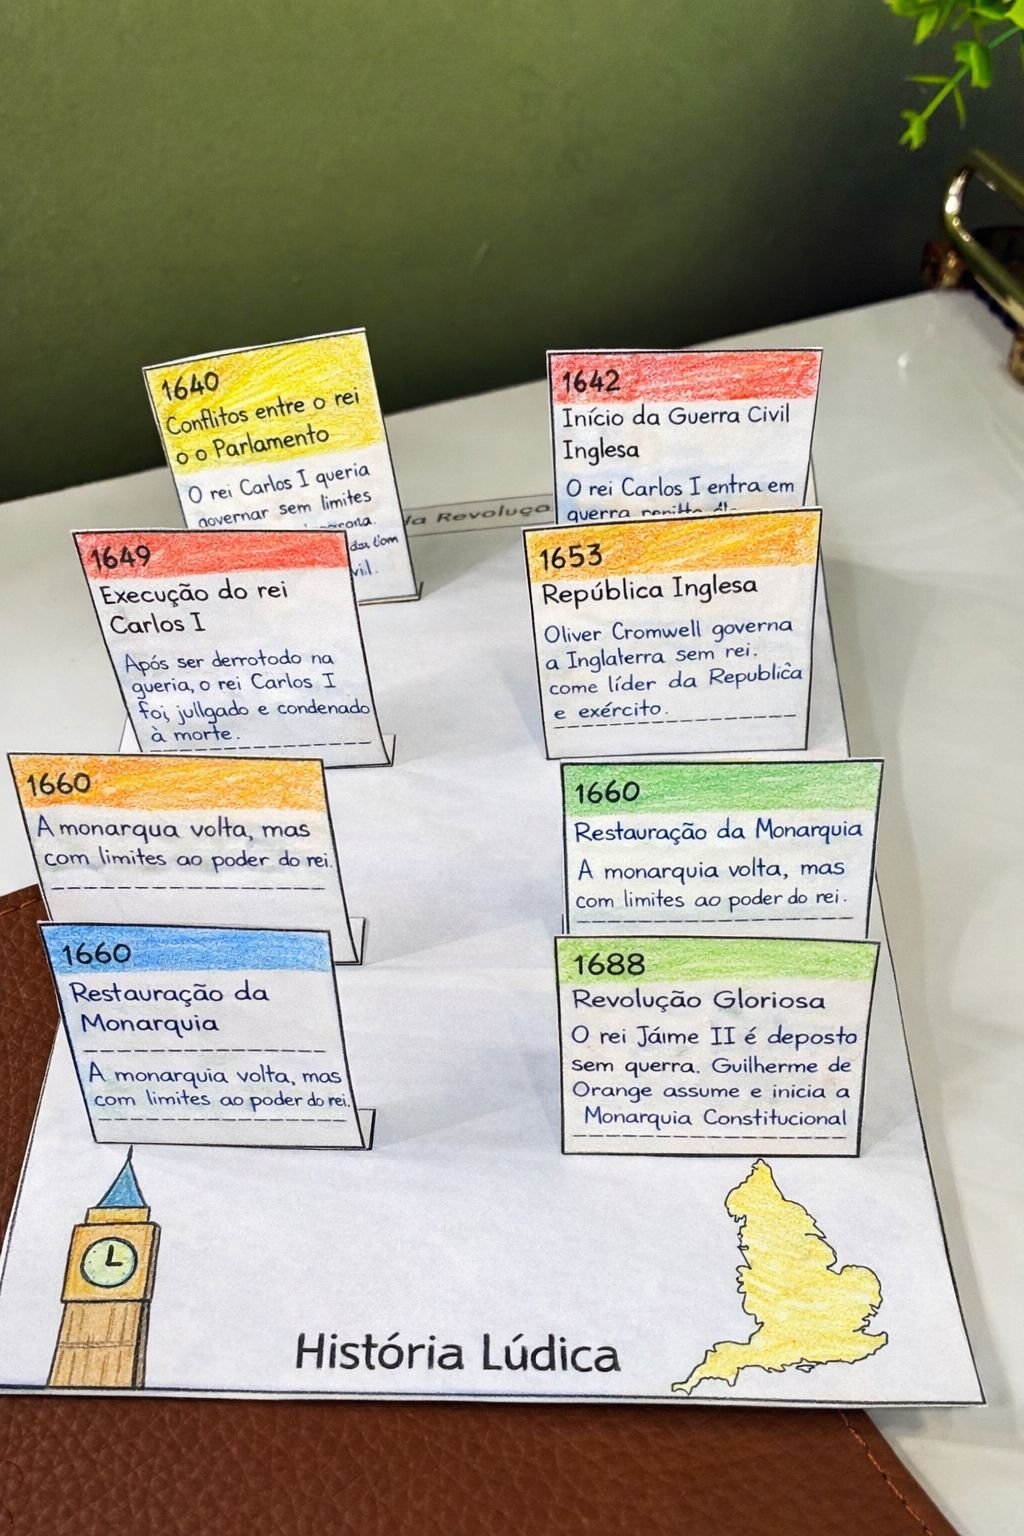 1640
Conflitos entre o rei
o o Parlamento
O rei Carlos I queria
governar sem limites
1642
Início da Guerra Civil
Inglesa
O rei Carlos I entra em
da Revoluçã
1649
Execução do rei
Carlos I
Após ser derrotodo na
gueria, o rei Carlos I
foi, jullgado e condenado
à morte.
1653
República Inglesa
Oliver Cromwell governa
a Inglaterra sem rei.
come líder da Republica
e exército.
1660
A monarqua volta, mas
com limites ao poder do rei.
1660
Restauração da Monarquia
A monarquia volta, mas
com limites ao poder do rei.
1660
Restauração da
Monarquia
A monarquia volta, mas
com limites ao poder do rei.
1688
Revolução Gloriosa
O rei Jáime II é deposto
sem querra. Guilherme de
Orange assume e inicia a
Monarquia Constitucional
História Lúdica